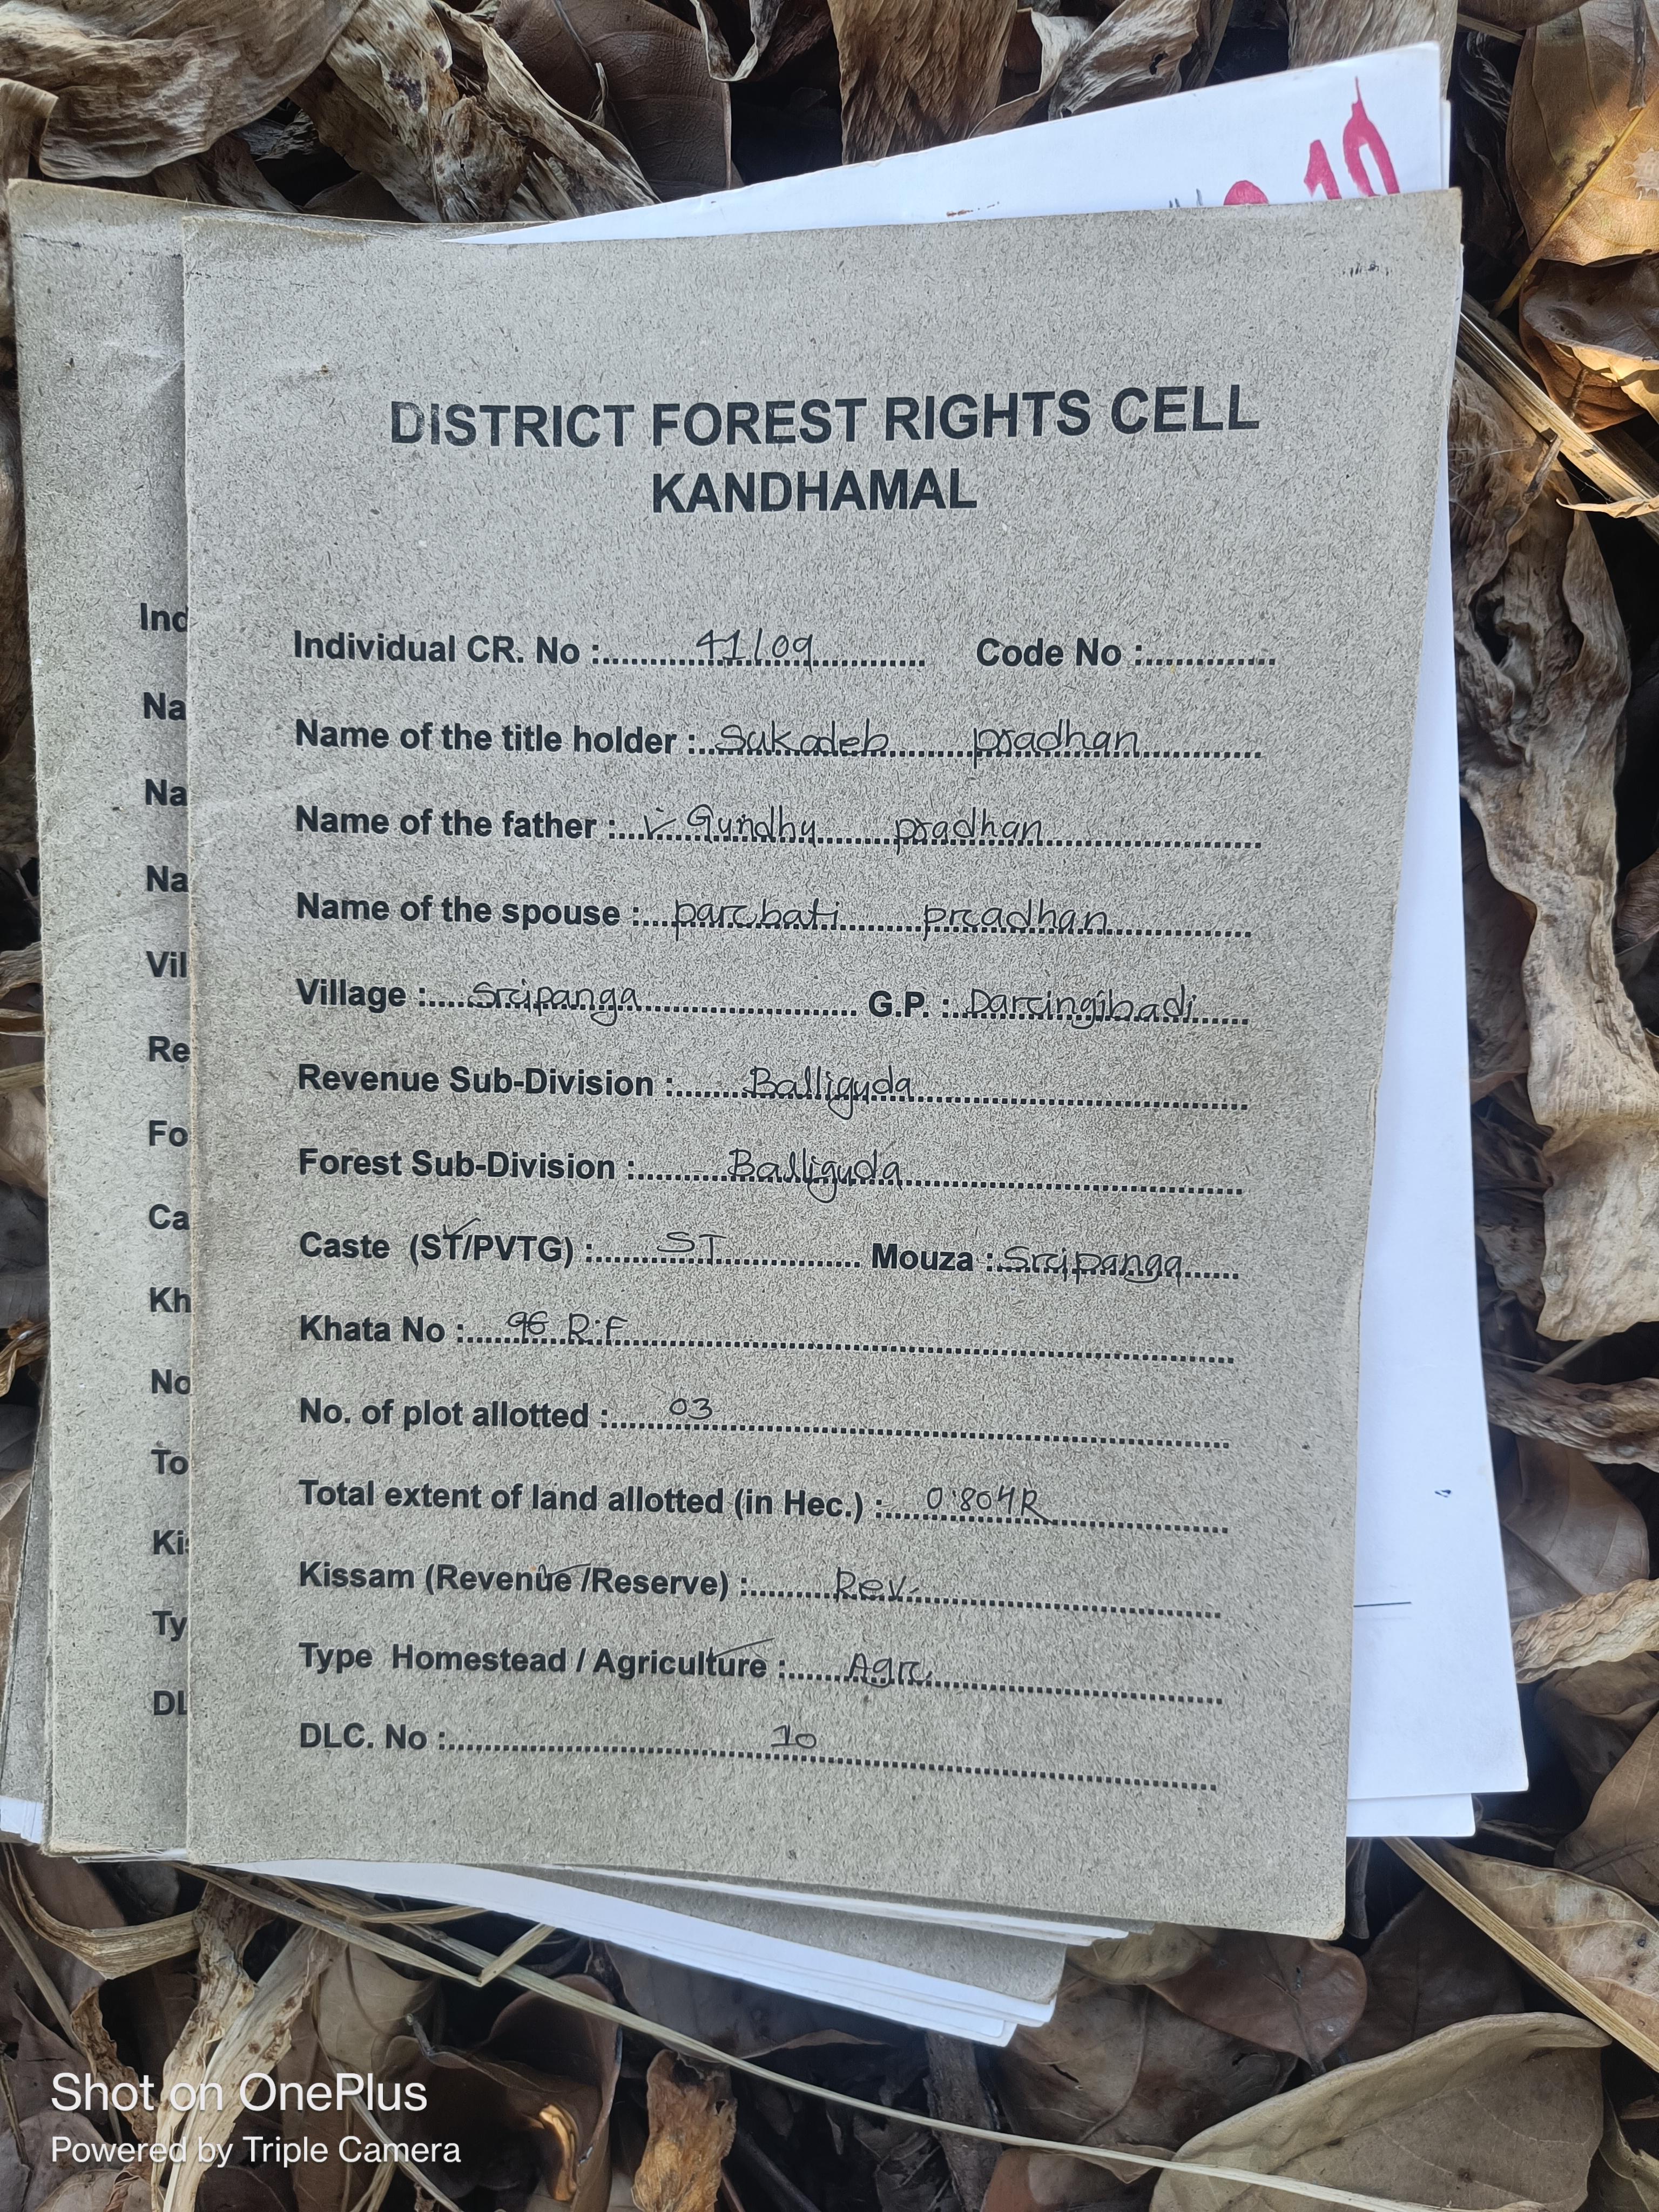 10
DISTRICT FOREST RIGHTS CELL
KANDHAMAL
Individual CR. No : 41/09 Code No :
Name of the title holder : Sukadeb pradhan
Name of the father : Gundhu pradhan
Name of the spouse : parbati pradhan
Village : Sripanga G.P. : Daringibadi
Revenue Sub-Division : Balliguda
Forest Sub-Division : Balliguda
Caste (ST/PVTG) : ST Mouza : Sripanga
Khata No : 96 R.F
No. of plot allotted : 03
Total extent of land allotted (in Hec.) : 0.804R
Kissam (Revenue /Reserve) : Rev.
Type Homestead / Agriculture : Agr.
DLC. No : 10
Ind
Na
Na
Na
Vil
Re
Fo
Ca
Kh
No
To
Kis
Ty
DL
Shot on OnePlus
Powered by Triple Camera